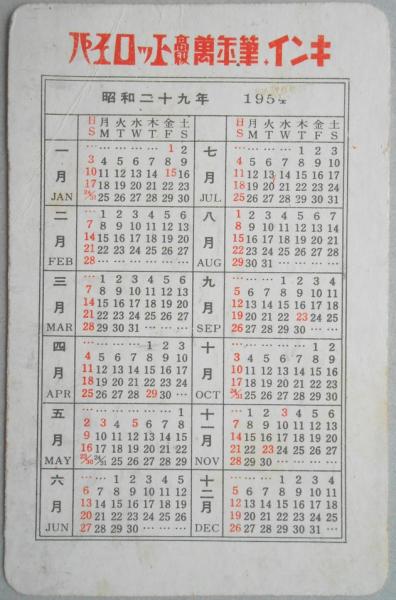 パイロット高級萬年筆.インキ
昭和二十九年 1954
日 月 火 水 木 金 土
S M T W T F S
一月
JAN
… … … … … 1 2
3 4 5 6 7 8 9
10 11 12 13 14 15 16
17 18 19 20 21 22 23
24/31 25 26 27 28 29 30
二月
FEB
… 1 2 3 4 5 6
7 8 9 10 11 12 13
14 15 16 17 18 19 20
21 22 23 24 25 26 27
28 … … … … … …
三月
MAR
… 1 2 3 4 5 6
7 8 9 10 11 12 13
14 15 16 17 18 19 20
21 22 23 24 25 26 27
28 29 30 31 … … …
四月
APR
… … … … 1 2 3
4 5 6 7 8 9 10
11 12 13 14 15 16 17
18 19 20 21 22 23 24
25 26 27 28 29 30 …
五月
MAY
… … … … … … 1
2 3 4 5 6 7 8
9 10 11 12 13 14 15
16 17 18 19 20 21 22
23/30 24/31 25 26 27 28 29
六月
JUN
… … 1 2 3 4 5
6 7 8 9 10 11 12
13 14 15 16 17 18 19
20 21 22 23 24 25 26
27 28 29 30 … … …
日 月 火 水 木 金 土
S M T W T F S
七月
JUL
… … … … 1 2 3
4 5 6 7 8 9 10
11 12 13 14 15 16 17
18 19 20 21 22 23 24
25 26 27 28 29 30 31
八月
AUG
1 2 3 4 5 6 7
8 9 10 11 12 13 14
15 16 17 18 19 20 21
22 23 24 25 26 27 28
29 30 31 … … … …
九月
SEP
… … … 1 2 3 4
5 6 7 8 9 10 11
12 13 14 15 16 17 18
19 20 21 22 23 24 25
26 27 28 29 30 … …
十月
OCT
… … … … … 1 2
3 4 5 6 7 8 9
10 11 12 13 14 15 16
17 18 19 20 21 22 23
24/31 25 26 27 28 29 30
十一月
NOV
… 1 2 3 4 5 6
7 8 9 10 11 12 13
14 15 16 17 18 19 20
21 22 23 24 25 26 27
28 29 30 … … … …
十二月
DEC
… … … 1 2 3 4
5 6 7 8 9 10 11
12 13 14 15 16 17 18
19 20 21 22 23 24 25
26 27 28 29 30 31 …